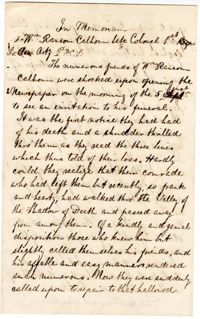 In Memoriam
Wm Ranson Calhoun late Colonel 1st Regt
So Ca Arty
The numerous friends of Wm Ranson
Calhoun were shocked upon opening the
Newspaper on the morning of the
to see an invitation to his funeral.
It was the first notice they had had
of his death and a shudder thrilled
thro' them as they read the three lines
which thus told of their loss. Hardly
could they realize that their comrade
who had left them but recently, so frank
and hearty, had walked thro' the Valley of
the Shadow of Death and passed away
from among them. Of a kindly and genial
disposition those who knew him but
slightly called themselves his friends, and
his affable and easy manners rendered
such numerous. Now they were suddenly
called upon to repair to that hallowed